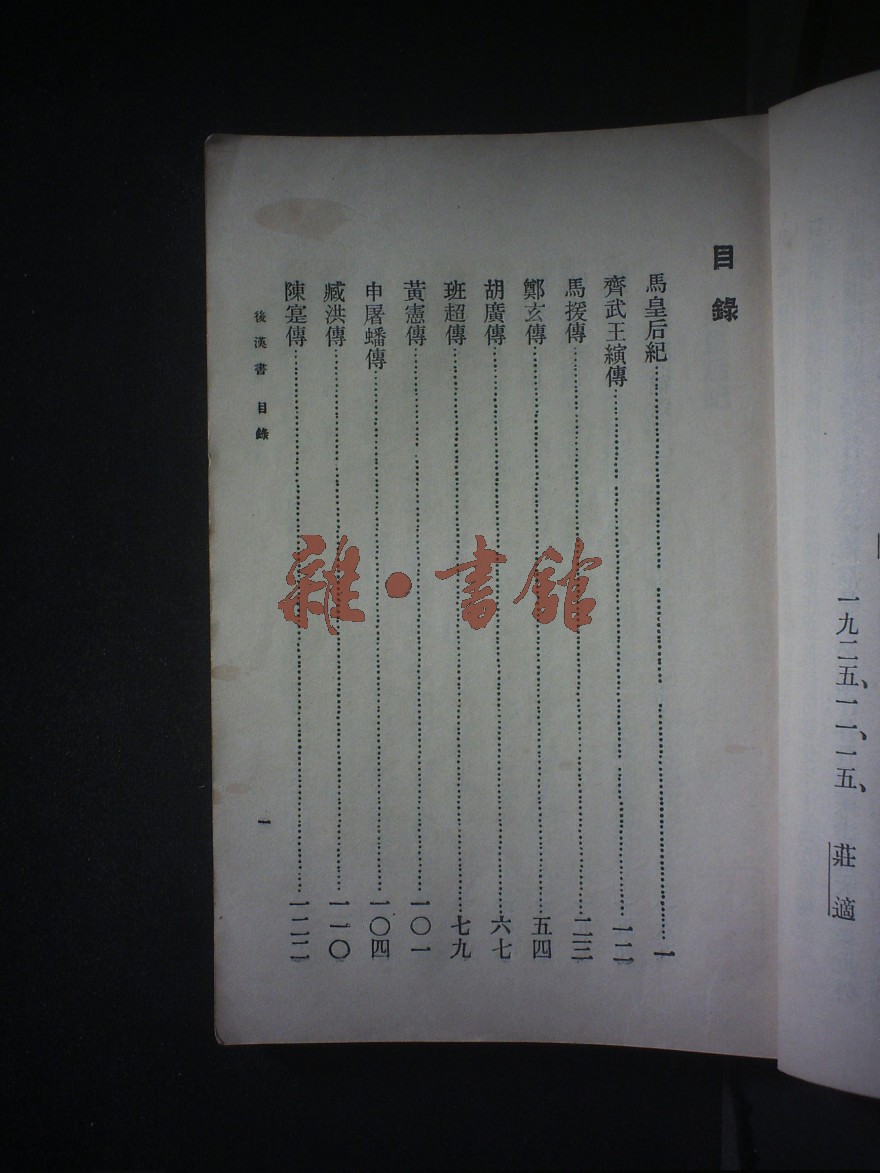 一九二五、一一、一五、 莊適
目錄
馬皇后紀……一
齊武王縯傳……一二
馬援傳……二三
鄭玄傳……五四
胡廣傳……六七
班超傳……七九
黃憲傳……一〇一
申屠蟠傳……一〇四
臧洪傳……一一〇
陳寔傳……一二二
後漢書 目錄 一
雜·書館